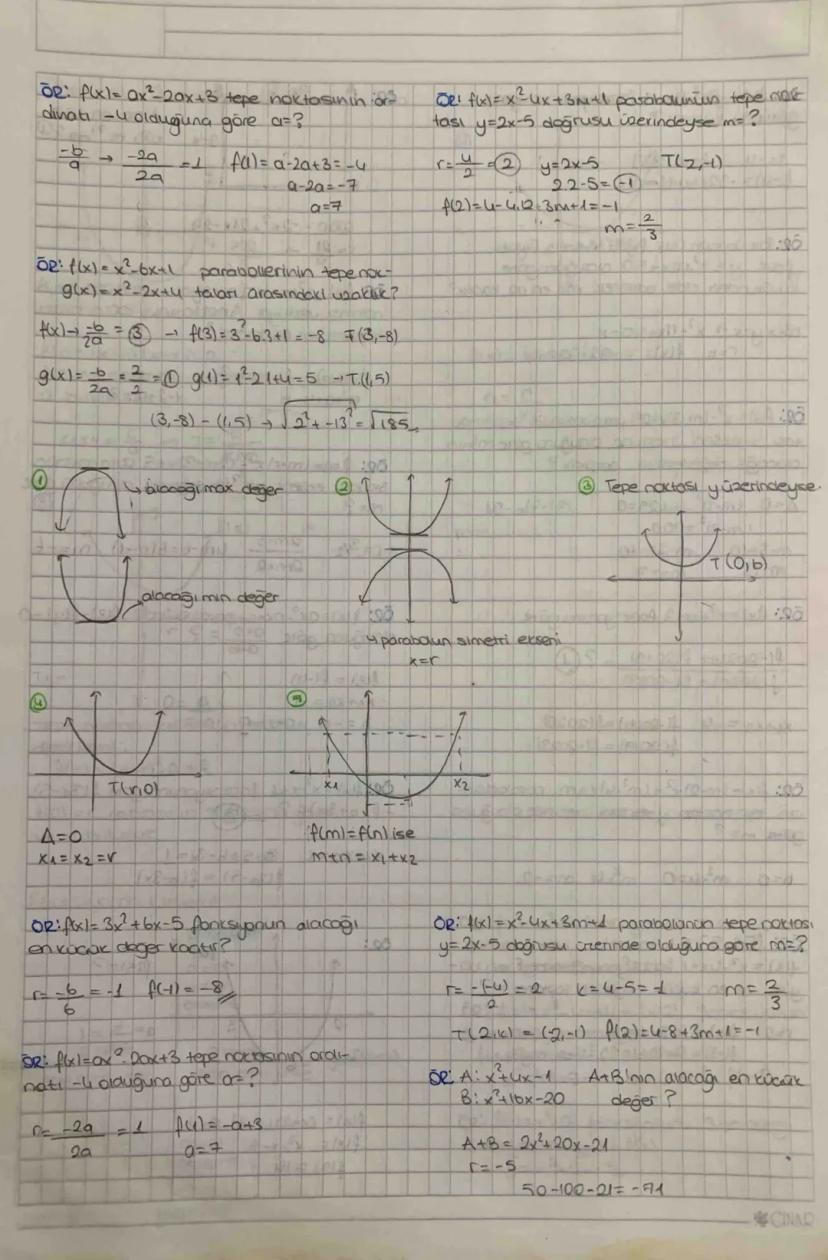 ÖR: f(x) = ax²-2ax+3 tepe noktasının or-
dinatı -4 olduğuna göre a=?
-b/a → -2a/2a = 1 f(1) = a-2a+3 = -4
a-2a = -7
a=7
ÖR: f(x) = x²-4x+3m+1 parabolünün tepe nok
tası y=2x-5 doğrusu üzerindeyse m=?
r = 4/2 = 2 y=2x-5 T(2,-1)
2.2-5 = -1
f(2) = 4-4.2+3m+1 = -1
m = 2/3
ÖR: f(x) = x²-6x+1 parabollerinin tepe nok-
g(x) = x²-2x+4 taları arasındaki uzaklık?
f(x) → -b/2a = 3 → f(3) = 3²-6.3+1 = -8 T(3,-8)
g(x) = -b/2a = 2/2 = 1 g(1) = 1²-2.1+4 = 5 → T(1,5)
(3,-8) - (1,5) → √2²+-13² = √185
1 ↳ alacağı max değer
alacağı min değer
2
↳ parabolün simetri ekseni
x=r
3 Tepe noktası y üzerindeyse
T(0,b)
4
T(r,0)
Δ=0
x1 = x2 = r
5
x1 x2
f(m) = f(n) ise
m+n = x1+x2
ÖR: f(x) = 3x²+6x-5 fonksiyonun alacağı
en küçük değer kaçtır?
r = -6/6 = -1 f(-1) = -8
ÖR: f(x) = x²-4x+3m+1 parabolünün tepe noktası
y=2x-5 doğrusu üzerinde olduğuna göre m=?
r = -(-4)/2 = 2 k = 4-5 = -1 m = 2/3
T(2,k) = (2,-1) f(2) = 4-8+3m+1 = -1
ÖR: f(x) = ax²-2ax+3 tepe noktasının ordi-
natı -4 olduğuna göre a=?
r = -2a/2a = 1 f(1) = -a+3
a=7
ÖR: A: x²+4x-1 A+B'nin alacağı en küçük
B: x²+16x-20 değer?
A+B = 2x²+20x-21
r = -5
50-100-21 = -71
ÇINAR